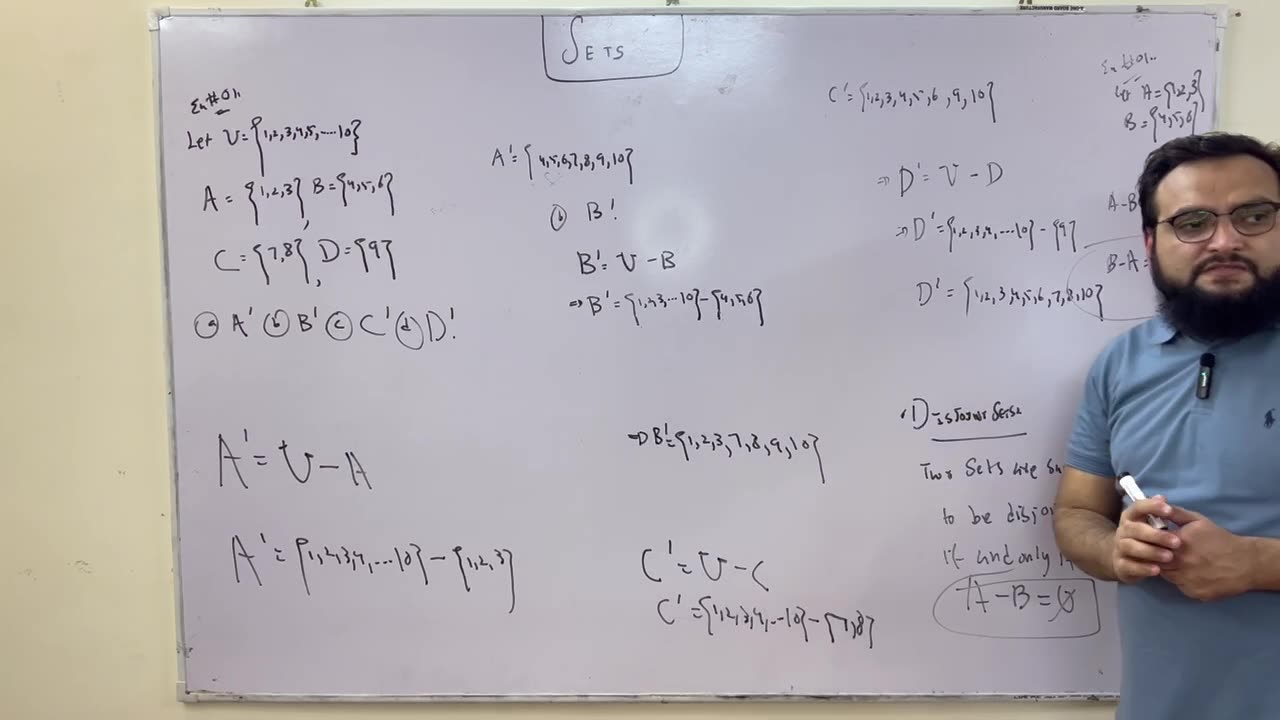 SETS
Ex#01.
Let U={1,2,3,4,5,....10}
A = {1,2,3}, B={4,5,6}
C={7,8}, D={9}
ⓐ A' ⓑ B' ⓒ C' ⓓ D'.
A' = U - A
A' = {1,2,3,4,...10} - {1,2,3}
A' = {4,5,6,7,8,9,10}
ⓑ B'.
B' = U - B
⇒ B' = {1,2,3,...10} - {4,5,6}
⇒ B' = {1,2,3,7,8,9,10}
C' = U - C
C' = {1,2,3,4,...10} - {7,8}
C' = {1,2,3,4,5,6,9,10}
⇒ D' = U - D
⇒ D' = {1,2,3,4,...10} - {9}
D' = {1,2,3,4,5,6,7,8,10}
• Disjoint Sets
Two Sets are
to be
if and only
A - B = ∅
Ex#01.
A={1,2,3}
B={4,5,6}
A-B
B-A=